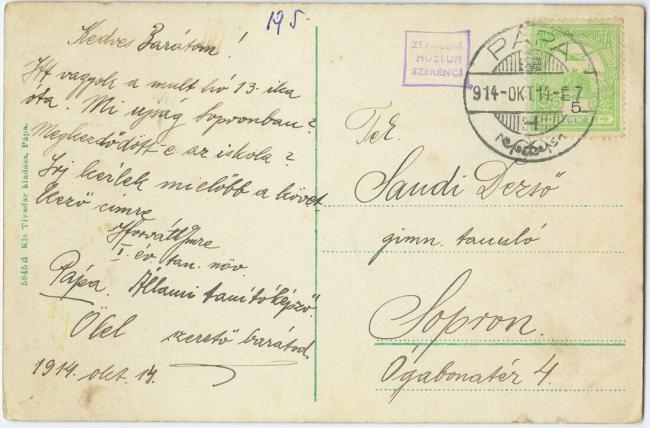 195.
Kedves Barátom!
Itt vagyok a mult hó 13. ika
óta. Mi ujság Sopronban?
Megkezdődött-e az iskola?
Irj kérlek mielőbb a követ-
kező cimre
Horváth Imre
I. év. tan. növ.
Pápa. Állami tanítóképző.
Ölel szerető barátod
1914. okt. 14.
5845 d Kis Tivadar kiadása, Pápa.
ZEMPLÉNI
MÚZEUM
SZERENCS
PÁPA
914-OKT.14-E 7
5
Tek.
Saudi Dezső
gimn. tanuló
Sopron.
Ógabonatér 4.